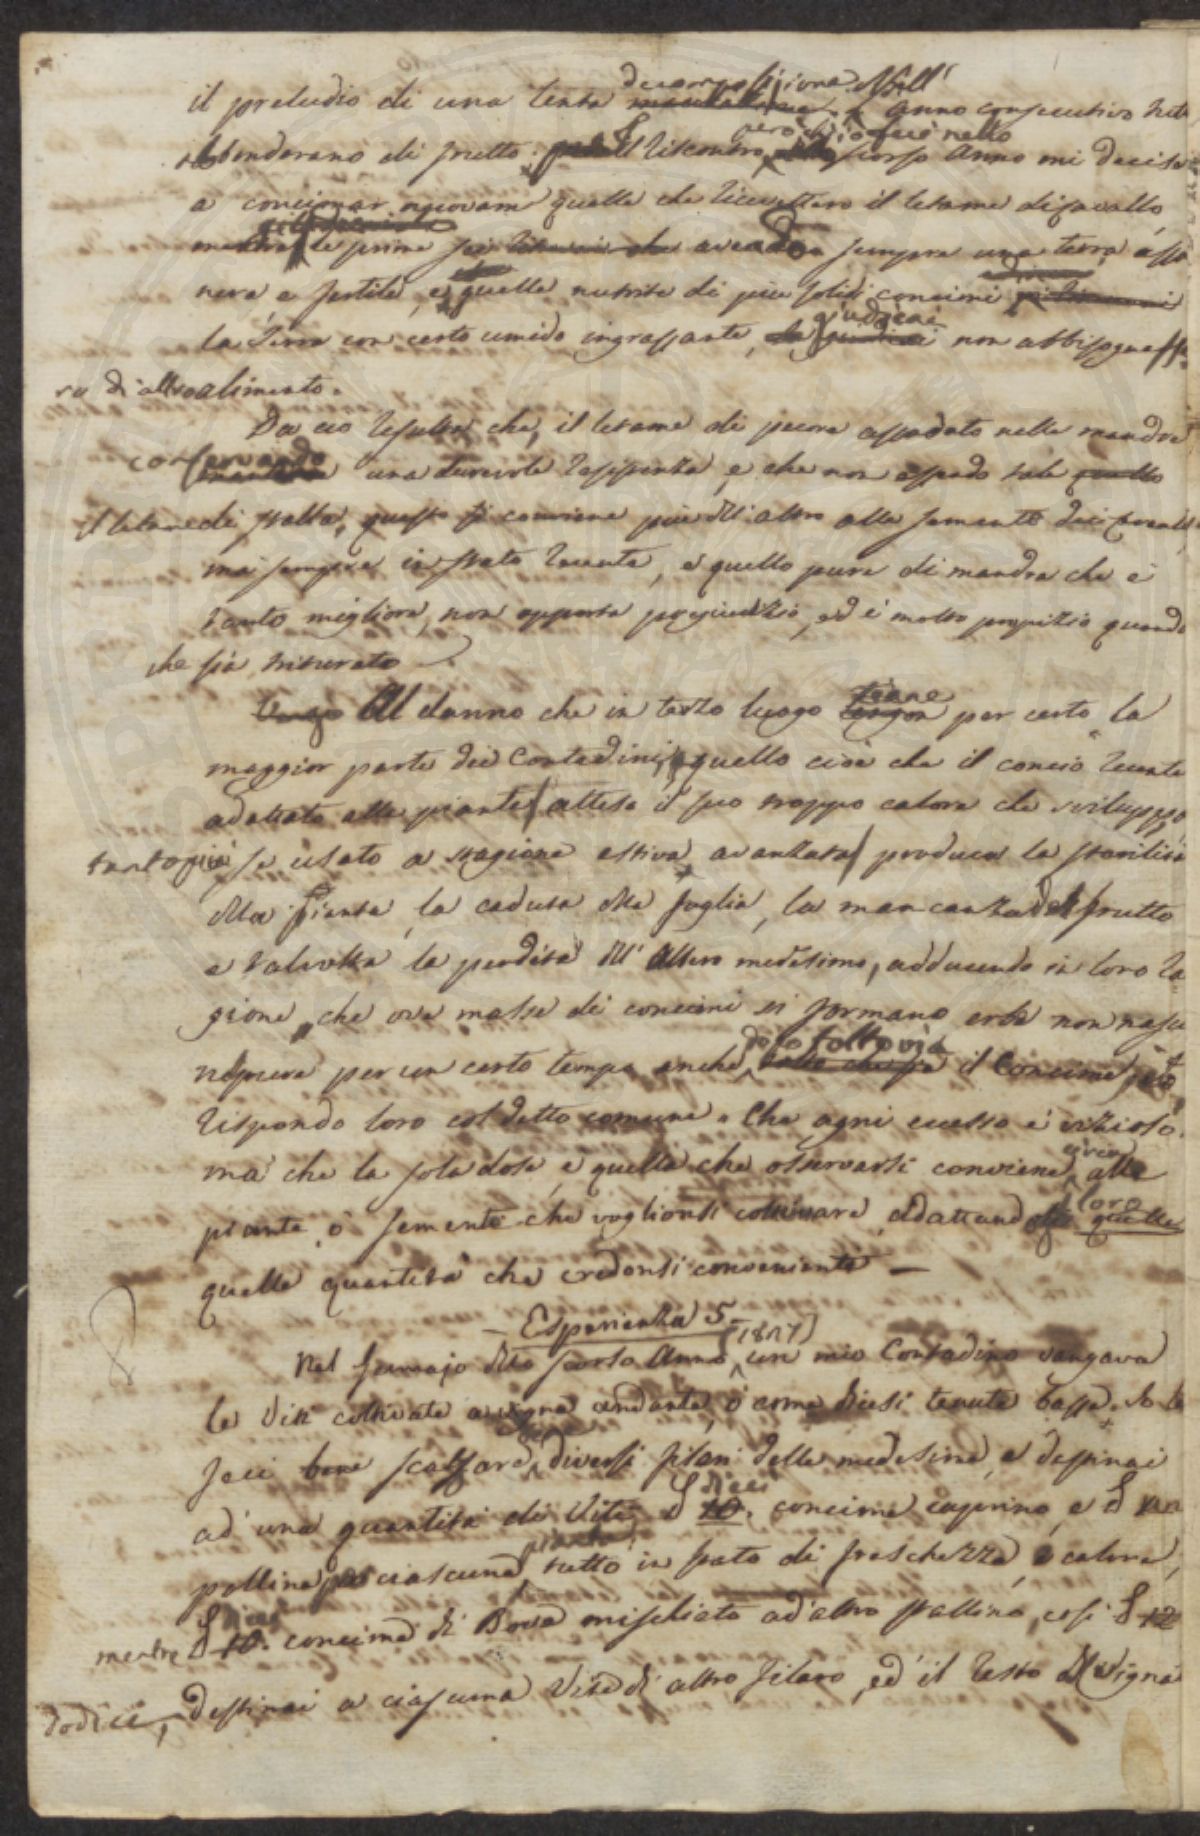 il preludio di una lenta decomposizione. Nell'anno consecutivo tut
abbondarano di frutto. Il riscontro però di ciò nello scorso Anno mi decise
a concimar nuovam quelle che ricevettero il letame di cavallo,
le prime avendo sempre una terra assai
nera, e fertile, e quelle nutrite di più solidi concimi
la Terra con certo umido ingrassante, giudicai non abbisognasse
ro d'altro alimento.
Da ciò resulta che, il letame di pecore assodato nelle mandre
conservando una durevole resistenza, e che non essendo tale quello
il letame di stalla, questo si conviene più dell'altro alle sementi dei cereali,
ma sempre in stato recente, e quello pure di mandra che è
tanto migliore, non apporta pregiudizio, ed è molto propizio quando
che sia triturato
Al danno che in terzo luogo teme per certo la
maggior parte dei Contadini, quello cioè che il concio recente
adattato alle piante, atteso il suo troppo calore che sviluppa,
tantopiù se usato a stagione estiva avanzata, produca la sterilità
della pianta, la caduta della foglia, la mancanza del frutto
e talvolta la perdita dell'Albero medesimo, adducendo in loro ra
gione, che ove masse di concimi si formano erbe non nasco
neppure per un certo tempo anche dopo tolto via il Concime
Rispondo loro col detto comune. Che ogni eccesso è vizioso,
ma che la sola dose, è quella che osservarsi conviene, circa alle
piante, o sementi che voglionsi coltivare, adattando loro
quella quantità che credonsi conveniente —
— Esperienza 5.
Nel Gennajo dello scorso Anno (1817) un mio Contadino vangava
le Viti coltivate a vigna andante, o come dicesi tenute basse. Io le
feci bene scalzare, diversi filari delle medesime, e destinai
ad una quantità di Viti dieci 10. concime caprino, e una
pollina per ciascuna pianta, tutto in stato di freschezza, e calore,
mentre dieci 10. concime di Bove mischiato ad altro stallino, così 12
dodici, destinai a ciascuna Vite di altro filaro, ed il resto della Vigna